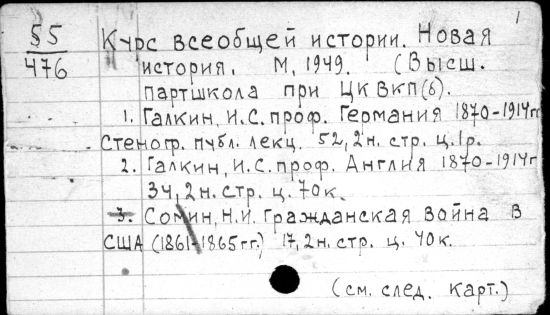 1
55
476
Курс всеобщей истории. Новая
история. М, 1949. (Высш.
партшкола при ЦК ВКП(б).
1. Галкин, И.С. проф. Германия 1870-1914гг
Стеногр. публ. лекц. 52, 2н. стр. ц. 1р.
2. Галкин, И.С. проф. Англия 1870-1914г
34, 2н. стр. ц. 70к.
3. Сомин, Н.И. Гражданская война в
США (1861-1865гг.) 17, 2н. стр. ц. 40к.
(см. след. карт.)